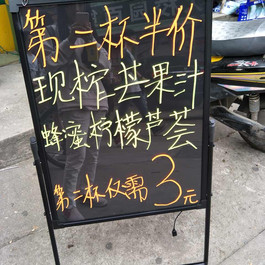 第二杯半价
现榨芒果汁
蜂蜜柠檬芦荟
第二杯仅需3元